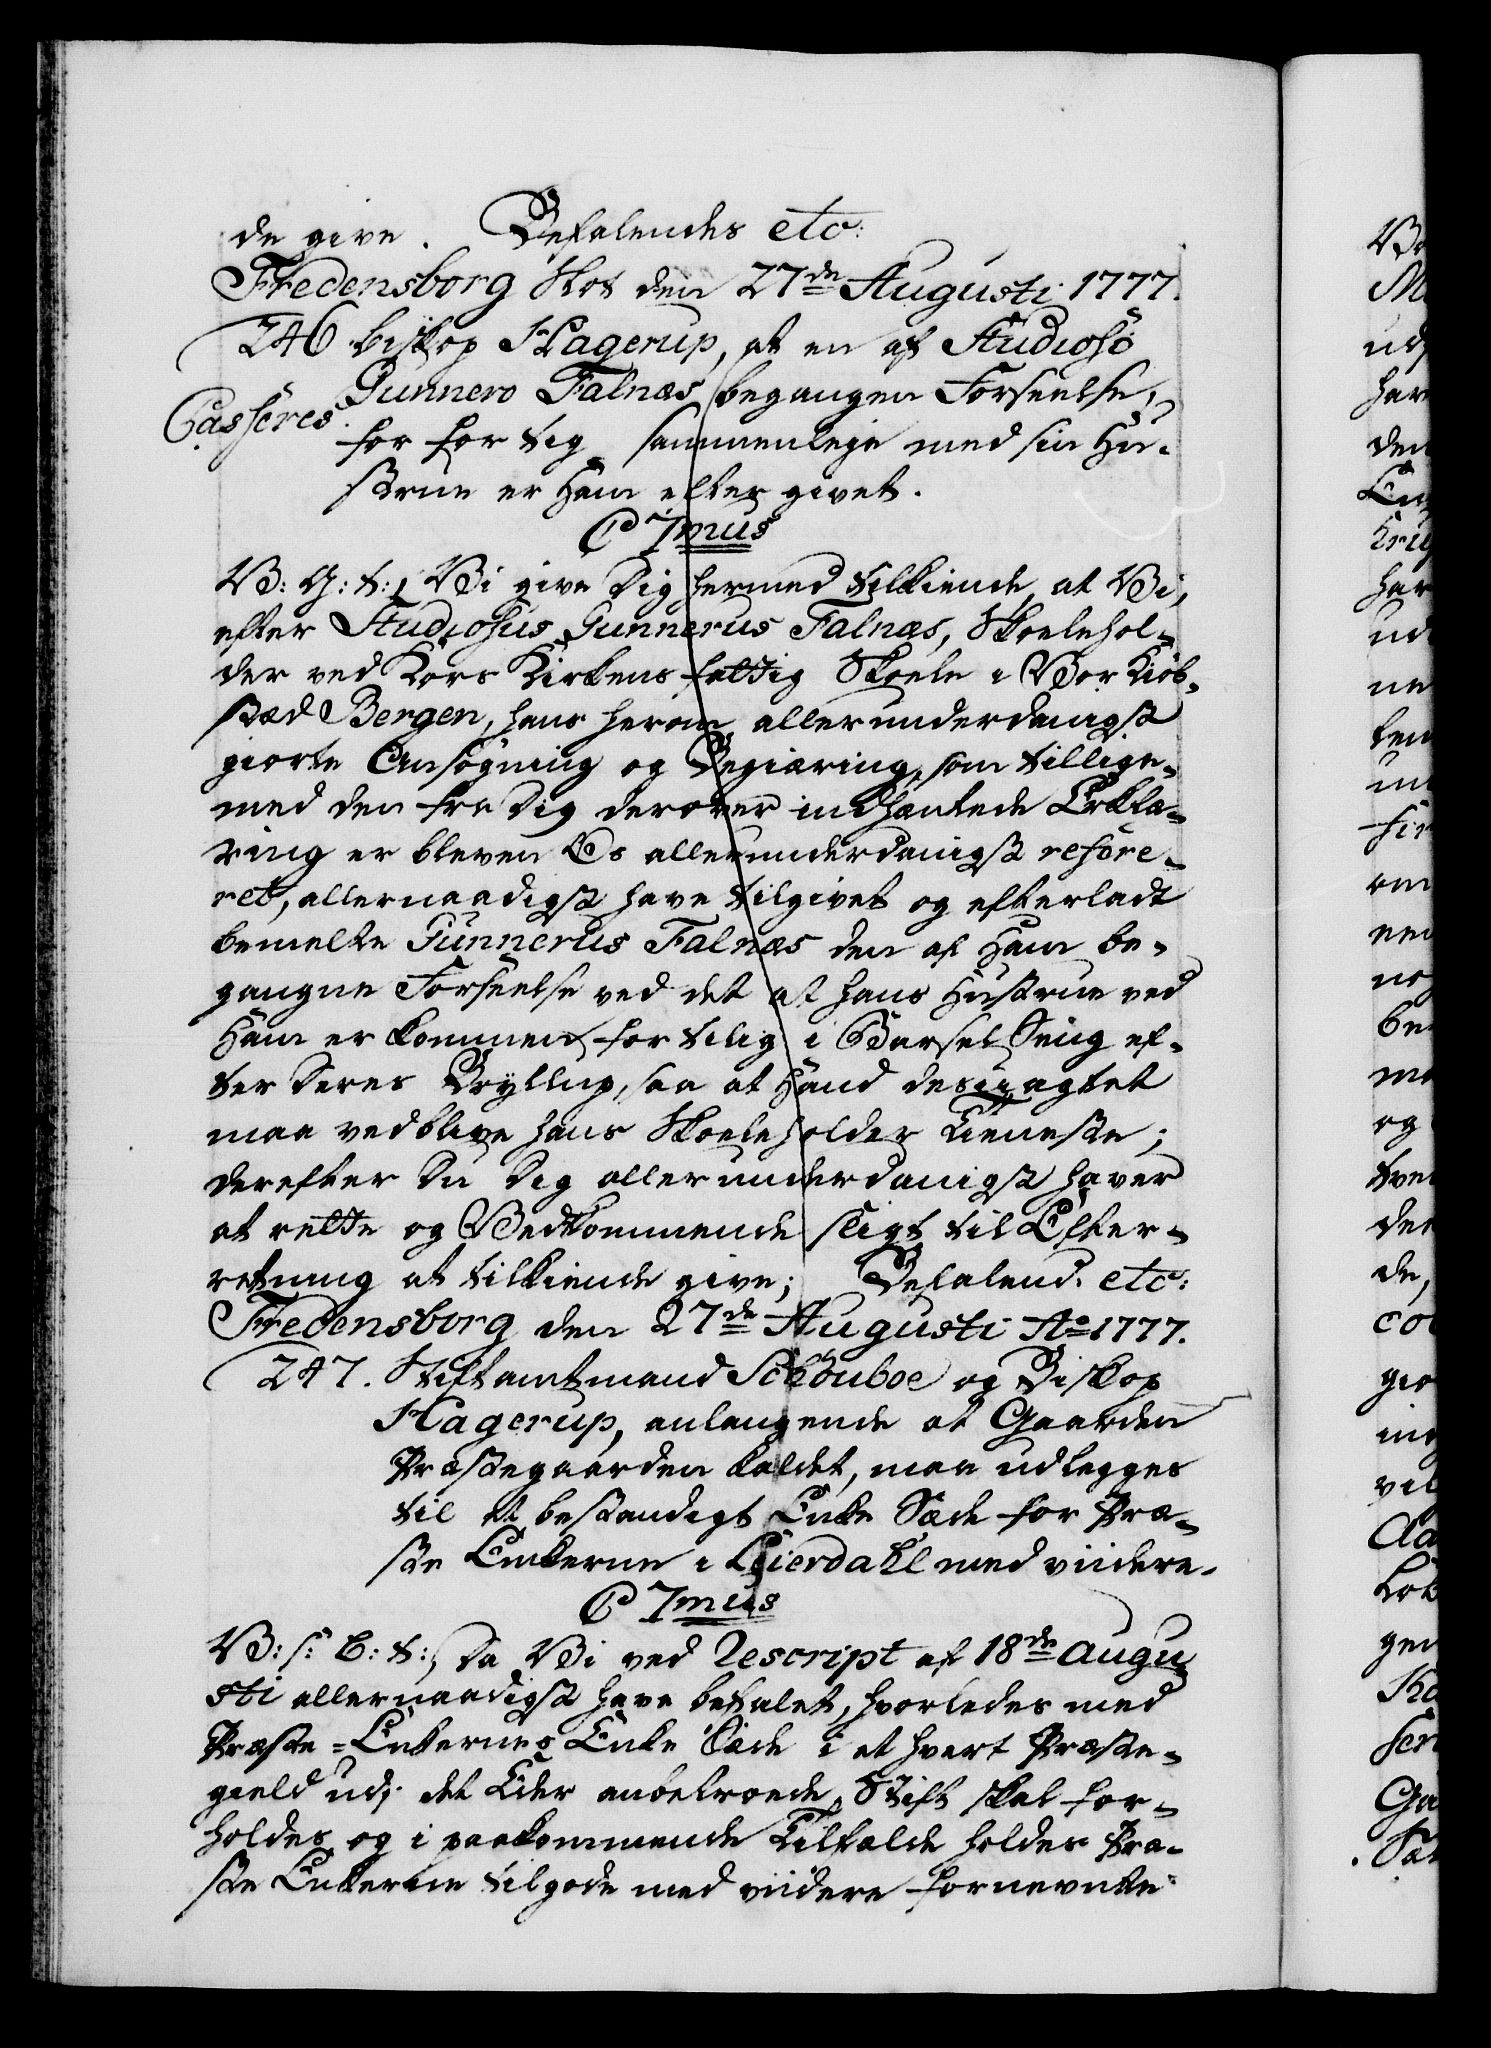 de give. Befalendes etc:
Fredensborg Slot den 27de Augusti 1777.
246 biskop Hagerup, at en af Studioso
Gunnero Falnæs begangen Forseelse,
Casseres.
for for tig sammenleje med sin Hu-
strue er Ham eftergivet.
C 7mus
V: G: t:, Vi give Dig hermed tilkiende, at Vi,
efter Studiosus Gunnerus Falnæs, Skoelehol-
der ved Kors Kirkens fattig Skoele i Vor Kiøb-
stæd Bergen, hans herom allerunderdanigst
giorte Ansøgning og Begiæring, som tillige-
med den fra Dig derover indhæntede Erklæ-
ring er bleven Os allerunderdanigst refere-
ret, allernaadigst have tilgivet og efterladt
bemelte Gunnerus Falnæs den af Ham be-
gangne Forseelse ved det at hans Hustrue ved
Ham er kommen for tilig i Barsel Seng ef-
ter Deres Bryllup, saa at Hand desuagtet
maa vedblive hans Skoeleholder Tieneste;
derefter Du Dig allerunderdanigst haver
at rette og Vedkommende sligt til Efter-
retning at tilkiende give; Befalend. etc:
Fredensborg den 27de Augusti Ao 1777.
247. Stiftamtmand Schouboe og Biskop
Hagerup, anlangende at Gaarden
Præstegaarden kaldet, maa udlegges
til et bestandigt Enke Sæde for Præ-
ste Enkerne i Leierdahl med viidere.
C 7mus
V: s: B: t:, Da Vi ved Rescript af 18de Augu
sti allernaadigst have befalet, hvorledes med
Præste-Enkernes Enke Sæde i et hvert Præste-
gield udj det Eder anbetroede Stift skal for-
holdes og i paakommende Tilfælde holdes Præ-
ste Enkerne tilgode med viidere fornevnte